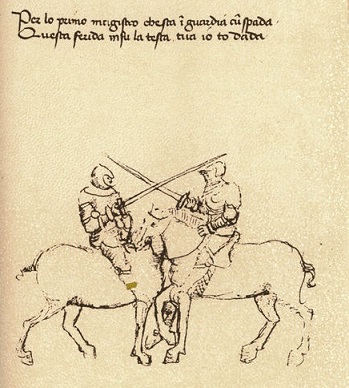 Per lo primo magistro che sta in guardia cū spada
Questa ferida in su la testa tua io to dada